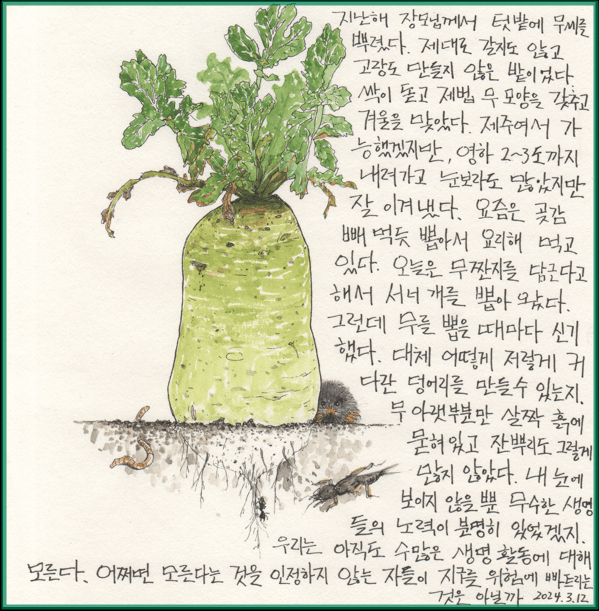 지난해 장모님께서 텃밭에 무씨를
뿌렸다. 제대로 갈지도 않고
고랑도 만들지 않은 밭이었다.
싹이 돋고 제법 무 모양을 갖추고
겨울을 맞았다. 제주여서 가
능했겠지만, 영하 2~3도까지
내려가고 눈보라도 많았지만
잘 이겨냈다. 요즘은 곶감
빼 먹듯 뽑아서 요리해 먹고
있다. 오늘은 무짠지를 담근다고
해서 서너 개를 뽑아 왔다.
그런데 무를 뽑을 때마다 신기
했다. 대체 어떻게 저렇게 커
다란 덩어리를 만들 수 있는지.
무 아랫부분만 살짝 흙에
묻혀있고 잔뿌리도 그렇게
많지 않았다. 내 눈에
보이지 않을 뿐 무수한 생명
들의 노력이 분명히 있었겠지.
우리는 아직도 수많은 생명 활동에 대해
모른다. 어쩌면 모른다는 것을 인정하지 않는 자들이 지구를 위험에 빠뜨리는
것은 아닐까 2024.3.12